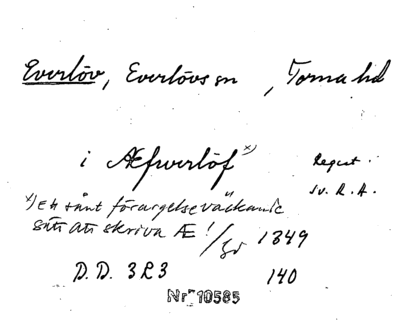 Everlöv, Everlövs sn, Torna hd
i Æfwerlöf x)
Regest.
Sv. R. A.
x) Ett sånt förargelseväckande
sätt att skriva Æ!
1349
D. D. 3 R 3 140
Nr 10585